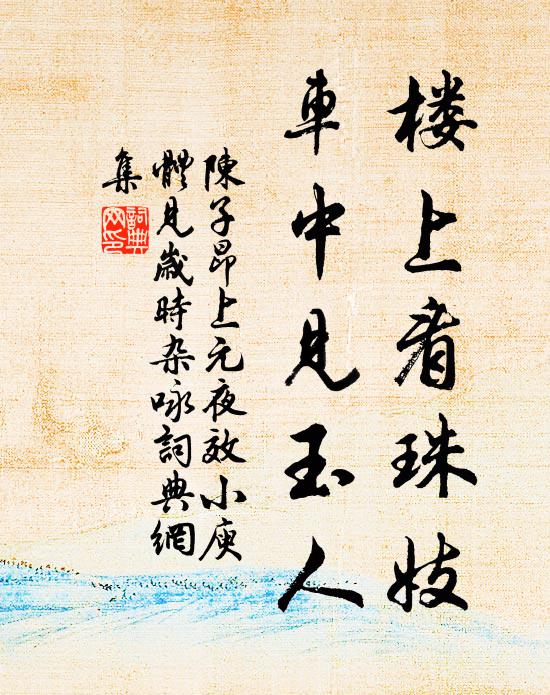 楼上看珠妓
車中見玉人
陳子昂上元夜效小庾
體見歲時杂咏詞典網
集
詞典
网印